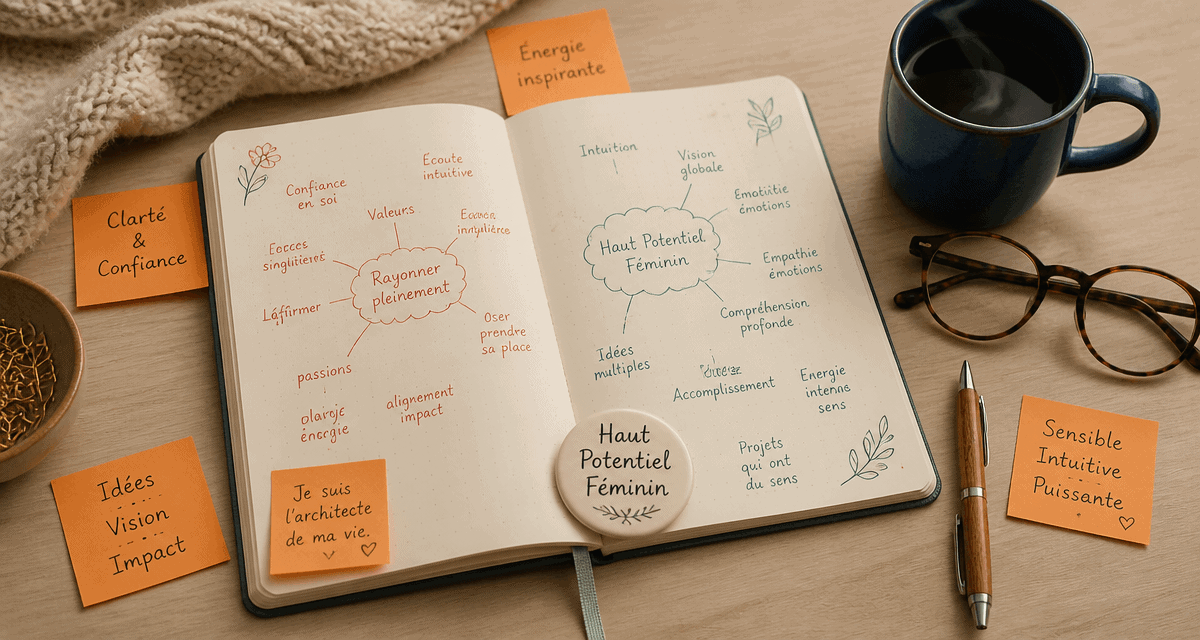 Énergie
inspirante
Clarté
&
Confiance
Confiance
en soi
Écoute
intuitive
Valeurs
Rayonner
pleinement
Oser
prendre
sa place
passions
alignement
impact
Je suis
l'architecte
de ma vie.
Idées
Vision
Impact
Intuition
Vision
globale
émotions
Haut Potentiel
Féminin
Empathie
émotions
Compréhension
profonde
Idées
multiples
Accomplissement
Energie
sens
Projets
qui ont
du sens
Haut
Potentiel
Féminin
Sensible
Intuitive
Puissante